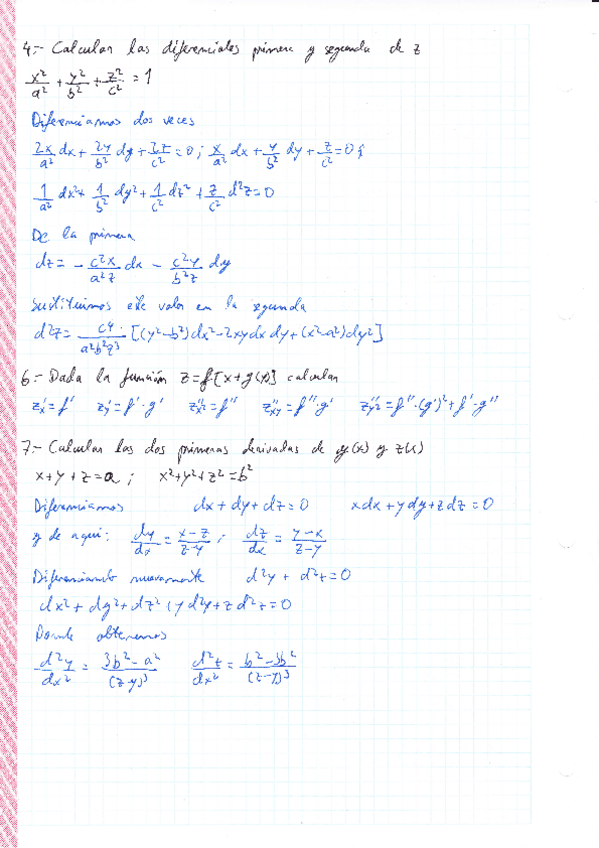 4.- Calcular las diferenciales primera y segunda de z
x²/a² + y²/b² + z²/c² = 1
Diferenciamos dos veces
2x/a² dx + 2y/b² dy + 2z/c² = 0 ; x/a² dx + y/b² dy + z/c² = 0 ;
1/a² dx² + 1/b² dy² + 1/c² dz² + z/c² d²z = 0
De la primera
dz = - c²x/a²z dx - c²y/b²z dy
Sustituimos este valor en la segunda
d²z = c⁴/a²b²z³ [(y²-b²)dx² - 2xy dx dy + (x²-a²)dy²]
6.- Dada la función z = f[x+g(y)] calcular
z'x = f' z'y = f'·g' z''x² = f'' z''xy = f''·g' z''y² = f''·(g')² + f'·g''
7.- Calcular las dos primeras derivadas de y(x) y z(x)
x+y+z = a ; x²+y²+z² = b²
Diferenciamos dx+dy+dz = 0 xdx+ydy+zdz = 0
y de aquí: dy/dx = x-z/z-y ; dz/dx = y-x/z-y
Diferenciando nuevamente d²y + d²z = 0
dx² + dy² + dz² + y d²y + z d²z = 0
Donde obtenemos
d²y/dx² = 3b²-a²/(z-y)³ d²z/dx² = b²-3b²/(z-y)³